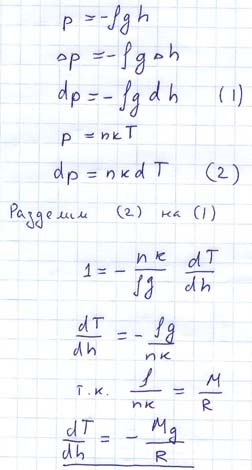 p = -ρgh
Δp = -ρgΔh
dp = -ρgdh (1)
p = nкT
dp = nкdT (2)
Разделим (2) на (1)
1 = - nк/ρg dT/dh
dT/dh = - ρg/nк
т.к. ρ/nк = M/R
dT/dh = - Mg/R